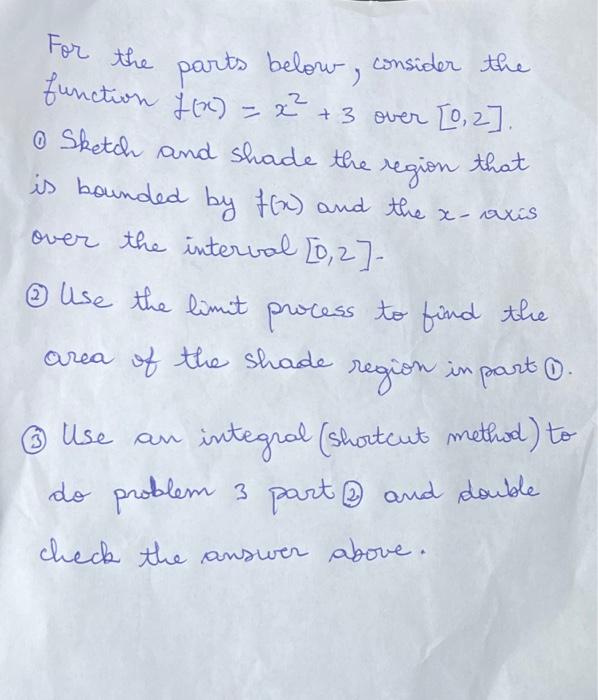 For the parts below, consider the
function f(x) = x² + 3 over [0,2].
① Sketch and shade the region that
is bounded by f(x) and the x-axis
over the interval [0,2].
② Use the limit process to find the
area of the shade region in part ①.
③ Use an integral (shortcut method) to
do problem 3 part ② and double
check the answer above.